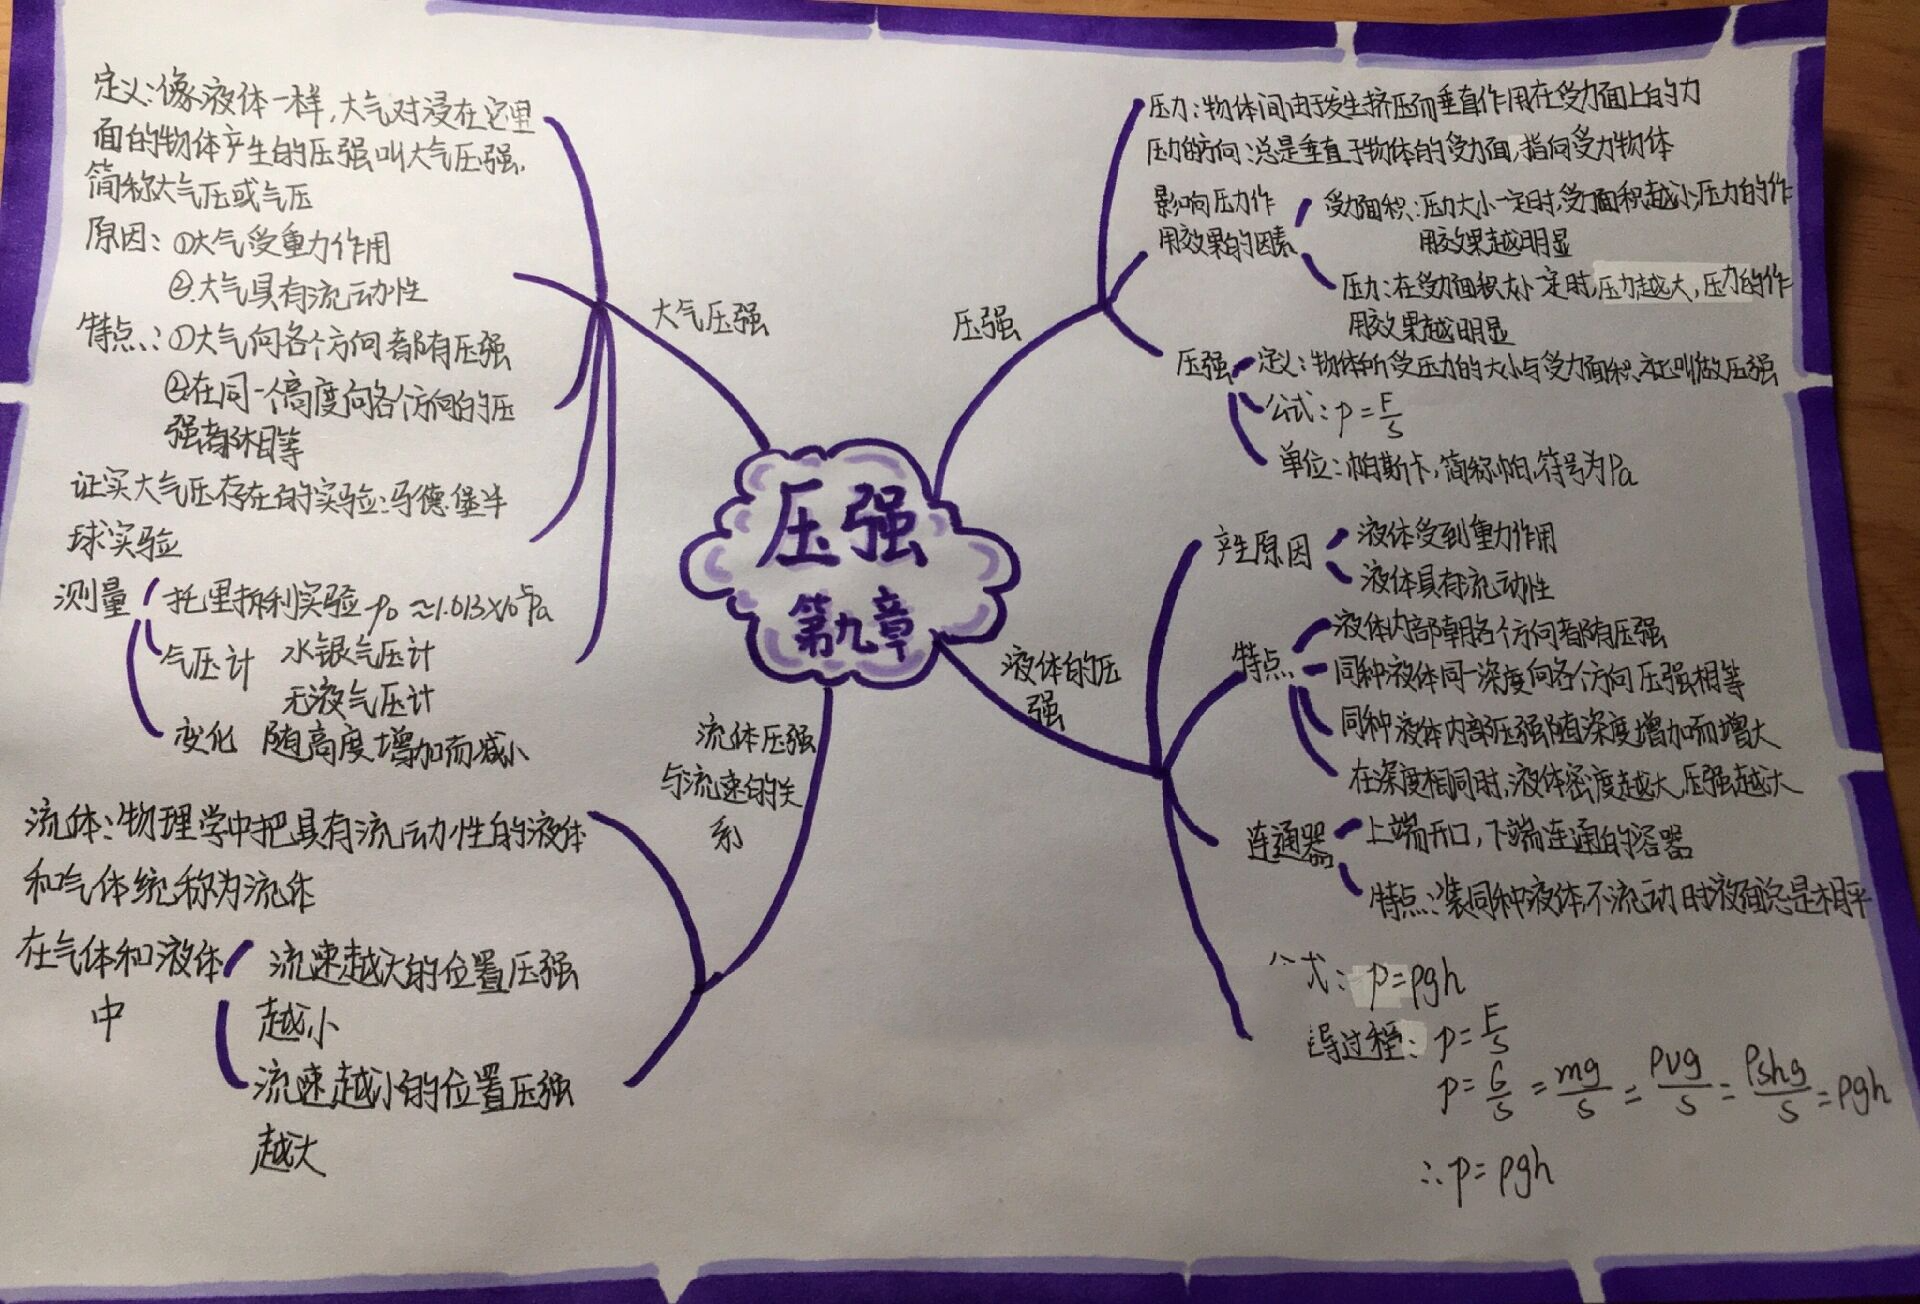 压强
第九章
压强
压力：物体间由于发生挤压而垂直作用在受力面上的力
压力的方向：总是垂直于物体的受力面，指向受力物体
影响压力作
用效果的因素
受力面积：压力大小一定时，受力面积越小，压力的作
用效果越明显
压力：在受力面积大小一定时，压力越大，压力的作
用效果越明显
压强
定义：物体所受压力的大小与受力面积之比叫做压强
公式：p=F/S
单位：帕斯卡，简称帕，符号为Pa
液体的压
强
产生原因
液体受到重力作用
液体具有流动性
特点
液体内部朝各个方向都有压强
同种液体同一深度向各个方向压强相等
同种液体内部压强随深度增加而增大
在深度相同时，液体密度越大，压强越大
连通器
上端开口，下端连通的容器
特点：装同种液体，不流动时液面总是相平
公式：p=ρgh
导过程：p=F/S
p=G/S=mg/S=ρVg/S=ρShg/S=ρgh
∴p=ρgh
大气压强
定义：像液体一样，大气对浸在它里
面的物体产生的压强叫大气压强，
简称大气压或气压
原因：①大气受重力作用
②大气具有流动性
特点：①大气向各个方向都有压强
②在同一个高度向各个方向的压
强都相等
证实大气压存在的实验：马德堡半
球实验
测量
托里拆利实验 p₀≈1.013×10⁵Pa
气压计 水银气压计
无液气压计
变化 随高度增加而减小
流体压强
与流速的关
系
流体：物理学中把具有流动性的液体
和气体统称为流体
在气体和液体
中
流速越大的位置压强
越小
流速越小的位置压强
越大